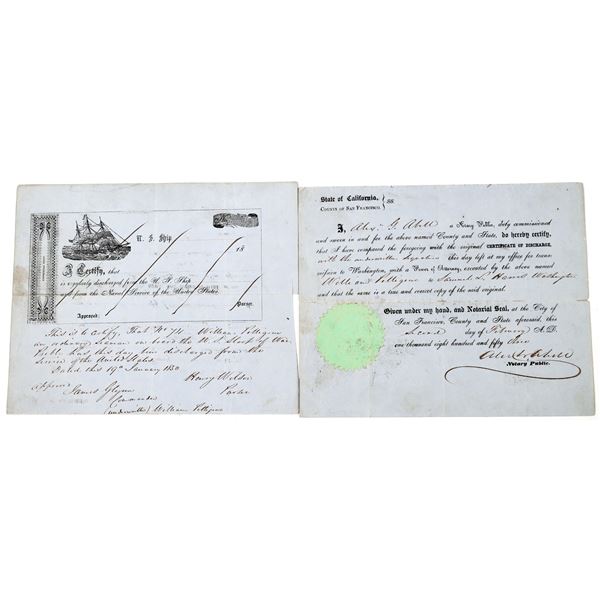 U. S. Ship
18
I Certify, that
is regularly discharged from the U. S. Ship
and from the Naval Service of the United States.
Purser.
Approved:
This is to certify, that No 711 William Pettigrew
an ordinary Seaman on board the U. S. Sloop of War
has this day been discharged from the
Service of the United States
Dated this 19th January 1850
Henry Wilson
Purser
Approved
James Glynn
Commander
William Pettigrew
State of California,
County of San Francisco. } ss.
I, Alex. G. Abell a Notary Public, duly commissioned
and sworn in and for the above named County and State, do hereby certify,
that I have compared the foregoing with the original CERTIFICATE OF DISCHARGE,
with the this day left at my office for trans-
mission to Washington, with a Power of Attorney executed by the above named
William Pettigrew to Samuel L. Harris Washington
and that the same is a true and correct copy of the said original.
Given under my hand, and Notarial Seal, at the City of
San Francisco, County and State aforesaid, this
Second day of February A. D.
one thousand eight hundred and fifty
Alex G Abell
Notary Public.